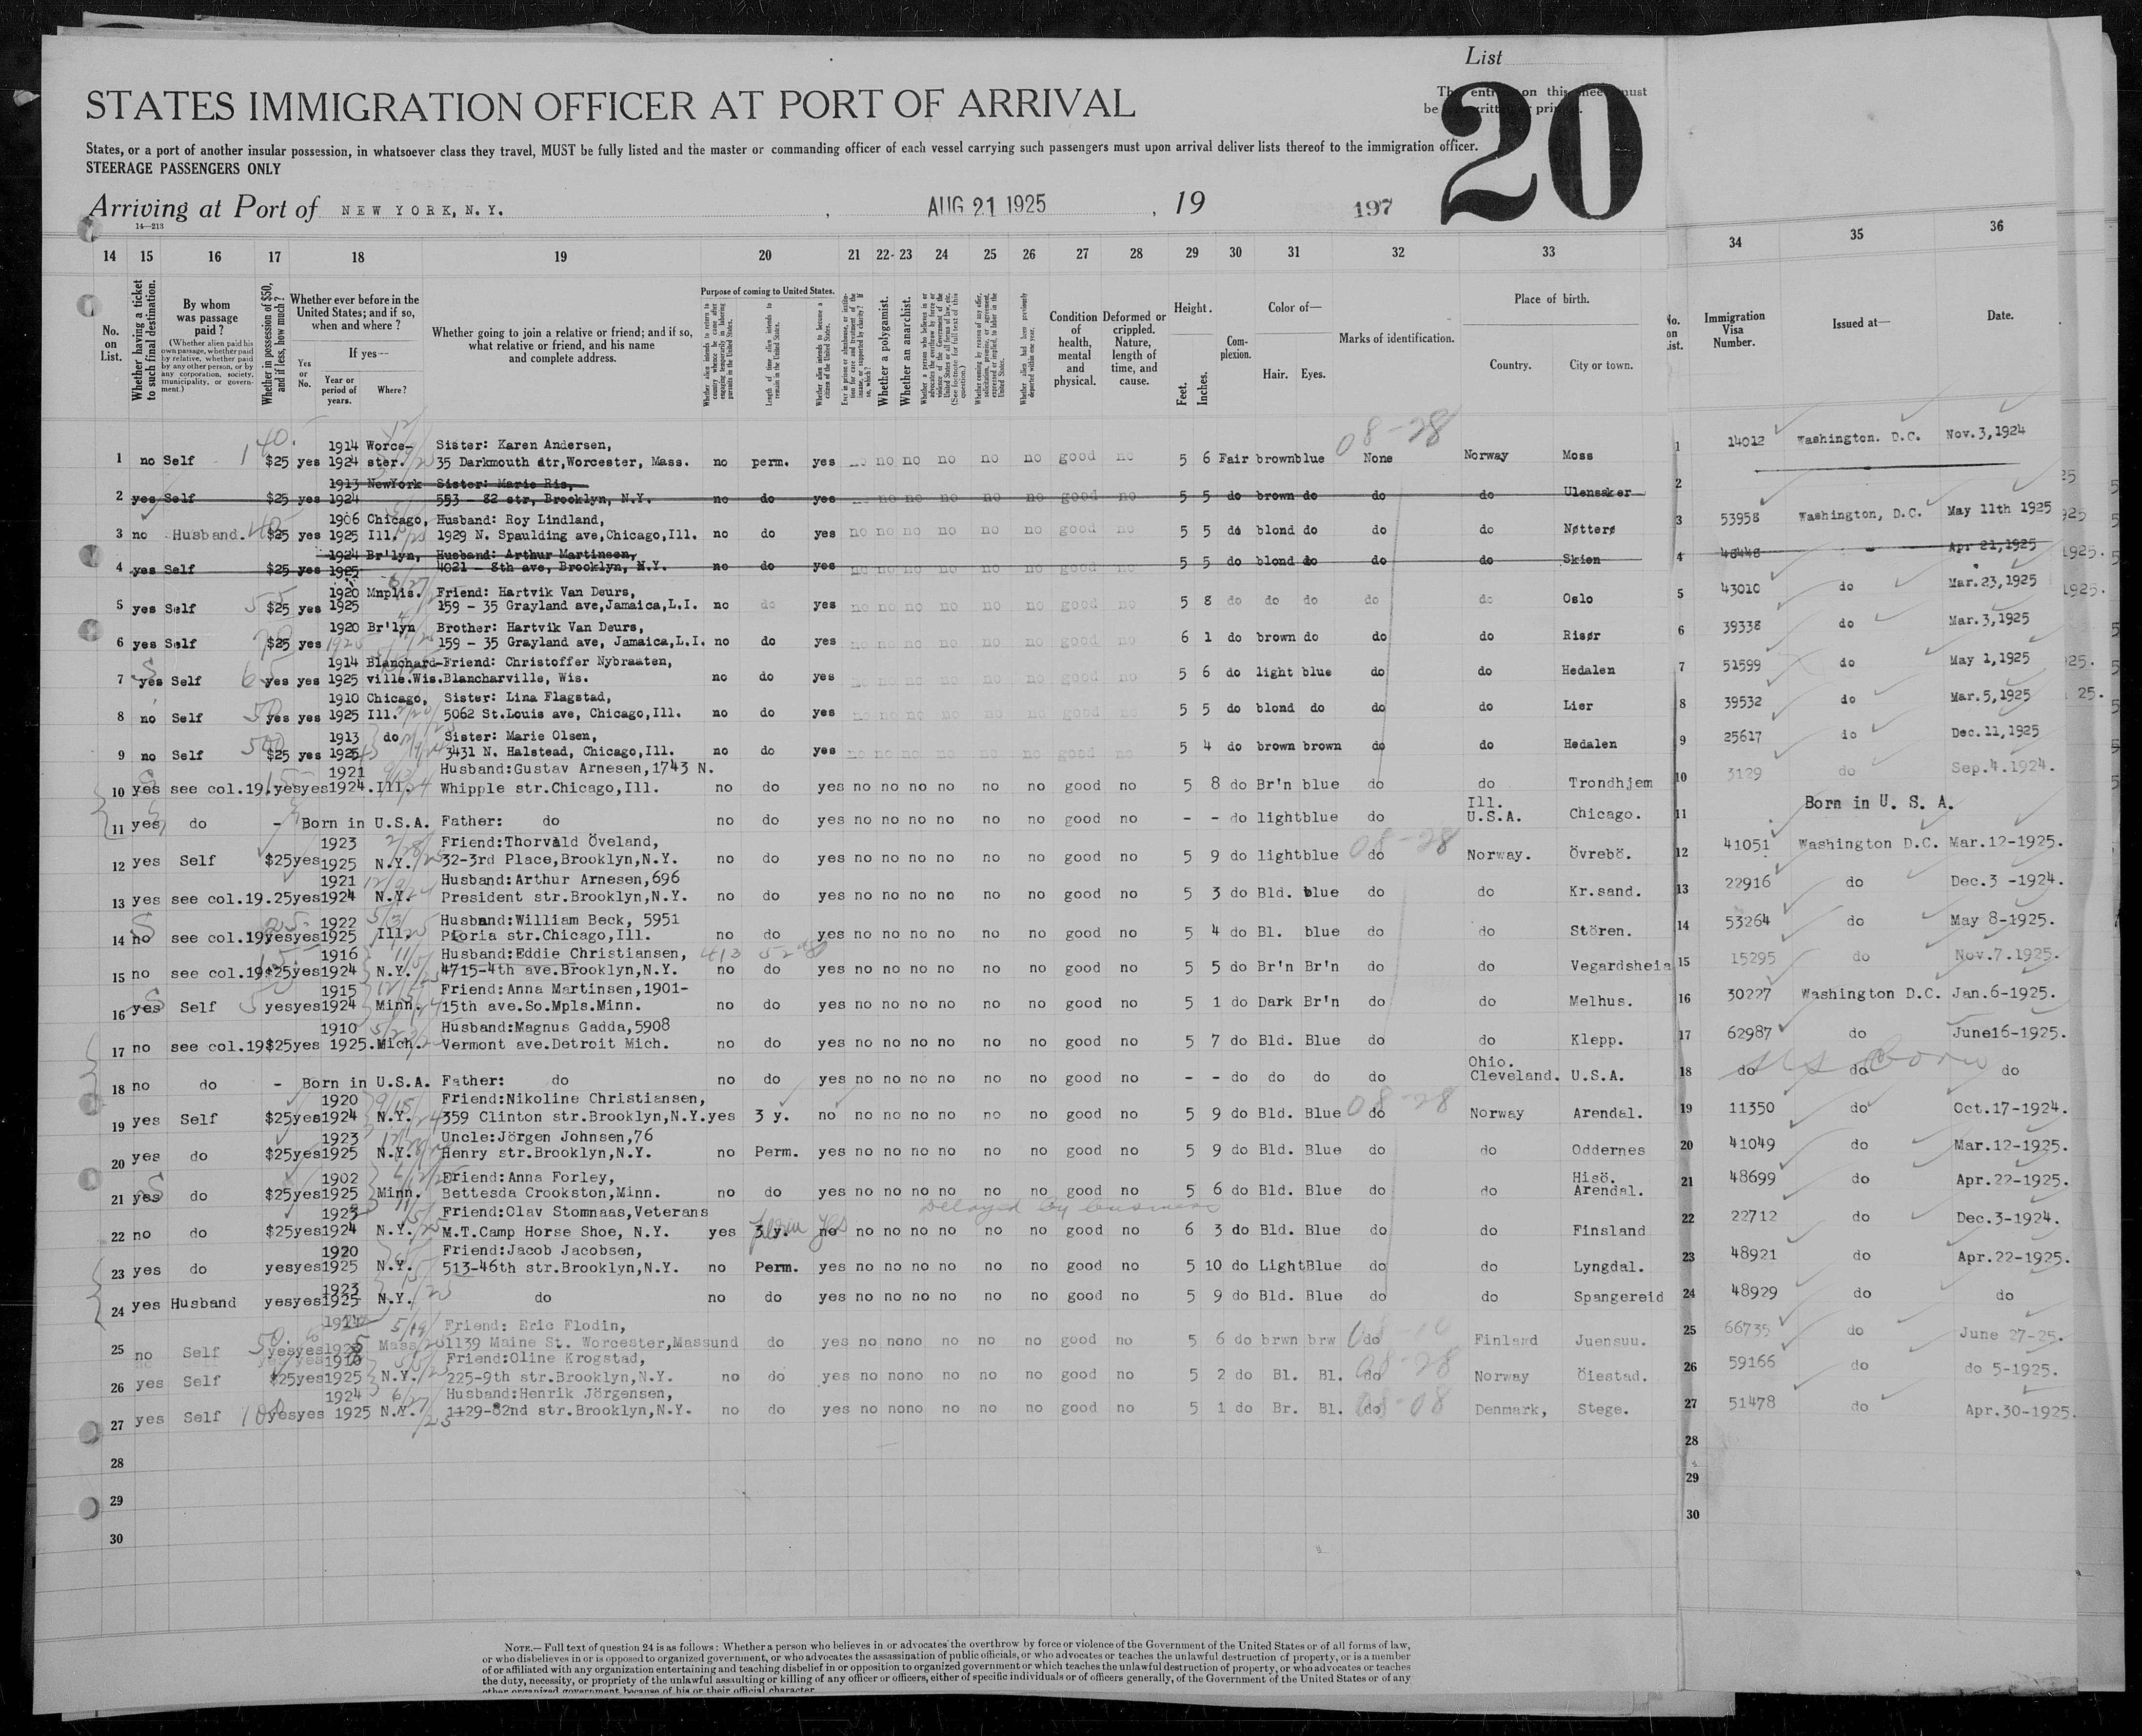 List
The entries on this sheet must
be typewritten or printed.
20
STATES IMMIGRATION OFFICER AT PORT OF ARRIVAL
States, or a port of another insular possession, in whatsoever class they travel, MUST be fully listed and the master or commanding officer of each vessel carrying such passengers must upon arrival deliver lists thereof to the immigration officer.
STEERAGE PASSENGERS ONLY
Arriving at Port of NEW YORK, N.Y. , AUG 21 1925 , 19 197
14—213
14 15 16 17 18 19 20 21 22- 23 24 25 26 27 28 29 30 31 32 33 34 35 36
No. on List.
Whether having a ticket to such final destination.
By whom was passage paid?
(Whether alien paid his own passage, whether paid by relative, whether paid by any other person, or by any corporation, society, municipality, or government.)
Whether in possession of $50, and if less, how much?
Whether ever before in the United States; and if so, when and where?
Yes or No.
If yes—
Year or period of years.
Where?
Whether going to join a relative or friend; and if so, what relative or friend, and his name and complete address.
Purpose of coming to United States.
Whether alien intends to return to country whence he came after engaging temporarily in laboring pursuits in the United States.
Length of time alien intends to remain in the United States.
Whether alien intends to become a citizen of the United States.
Whether a polygamist.
Whether an anarchist.
Condition of health, mental and physical.
Deformed or crippled. Nature, length of time, and cause.
Height.
Feet.
Inches.
Complexion.
Color of—
Hair. Eyes.
Marks of identification.
Place of birth.
Country. City or town.
No. on List.
Immigration Visa Number.
Issued at—
Date.
08-28
1914 Worce- Sister: Karen Andersen,
1 no Self $25 yes 1924 ster. 35 Darkmouth str,Worcester, Mass. no perm. yes no no no no no no good no 5 6 Fair brown blue None Norway Moss 1 14012 Washington. D.C. Nov.3,1924
1913 NewYork Sister: Marie Ris,
2 yes Self $25 yes 1924 553 - 82 str, Brooklyn, N.Y. no do yes no no no no no good no 5 5 do brown do do do Ulensaker 2
1906 Chicago, Husband: Roy Lindland,
3 no Husband. $25 yes 1925 Ill. 1929 N. Spaulding ave,Chicago,Ill. no do yes no no no no no no good no 5 5 do blond do do do Nøtterø 3 53958 Washington, D.C. May 11th 1925
1924 Br'lyn, Husband: Arthur Martinsen,
4 yes Self $25 yes 1925 4021 - 8th ave, Brooklyn, N.Y. no do yes no no no no no no good no 5 5 do blond do do do Skien 4 48448 Apr 21,1925
1920 Mnplis. Friend: Hartvik Van Deurs,
5 yes Self $25 yes 1925 159 - 35 Grayland ave,Jamaica,L.I. no do yes no no no no no no good no 5 8 do do do do do Oslo 5 43010 do Mar.23,1925
1920 Br'lyn Brother: Hartvik Van Deurs,
6 yes Self $25 yes 1925 159 - 35 Grayland ave, Jamaica,L.I. no do yes no no no no no no good no 6 1 do brown do do do Risør 6 39338 do Mar.3,1925
1914 Blanchard-Friend: Christoffer Nybraaten,
7 yes Self yes yes 1925 ville.Wis.Blancharville, Wis. no do yes no no no no no no good no 5 6 do light blue do do Hedalen 7 51599 do May 1,1925
1910 Chicago, Sister: Lina Flagstad,
8 no Self yes yes 1925 Ill. 5062 St.Louis ave, Chicago,Ill. no do yes no no no no no no good no 5 5 do blond do do do Lier 8 39532 do Mar.5,1925
1913 do Sister: Marie Olsen,
9 no Self 500 $25 yes 1925 3431 N. Halstead, Chicago,Ill. no do yes no no no no no no good no 5 4 do brown brown do do Hedalen 9 25617 do Dec.11,1925
1921 Husband:Gustav Arnesen,1743 N.
10 yes see col.19.yesyes1924.Ill. Whipple str.Chicago,Ill. no do yes no no no no no no good no 5 8 do Br'n blue do do Trondhjem 10 3129 do Sep.4.1924.
11 yes do - Born in U.S.A. Father: do no do yes no no no no no no good no - - do lightblue do Ill. U.S.A. Chicago. 11 Born in U. S. A.
1923 Friend:Thorvald Öveland,
12 yes Self $25yes1925 N.Y. 32-3rd Place,Brooklyn,N.Y. no do yes no no no no no no good no 5 9 do lightblue do 08-28 Norway. Övrebö. 12 41051 Washington D.C. Mar.12-1925.
1921 Husband:Arthur Arnesen,696
13 yes see col.19.25yes1924 N.Y. President str.Brooklyn,N.Y. no do yes no no no no no no good no 5 3 do Bld. blue do do Kr.sand. 13 22916 do Dec.3 -1924.
1922 Husband:William Beck, 5951
14 no see col.19yesyes1925 Ill. Pioria str.Chicago,Ill. no do yes no no no no no no good no 5 4 do Bl. blue do do Stören. 14 53264 do May 8-1925.
1916 Husband:Eddie Christiansen, 413 52nd
15 no see col.19$25yes1924 N.Y. 4715-4th ave.Brooklyn,N.Y. no do yes no no no no no no good no 5 5 do Br'n Br'n do do Vegardsheia 15 15295 do Nov.7.1925.
1915 Friend:Anna Martinsen,1901-
16 yes Self yesyes1924 Minn. 15th ave.So.Mpls.Minn. no do yes no no no no no no good no 5 1 do Dark Br'n do do Melhus. 16 30227 Washington D.C. Jan.6-1925.
1910 Husband:Magnus Gadda,5908
17 no see col.19$25yes 1925.Mich. Vermont ave.Detroit Mich. no do yes no no no no no no good no 5 7 do Bld. Blue do do Klepp. 17 62987 do June16-1925.
18 no do - Born in U.S.A. Father: do no do yes no no no no no no good no - - do do do do Ohio. Cleveland. U.S.A. 18 do do do US Born
1920 Friend:Nikoline Christiansen,
19 yes Self $25yes1924 N.Y. 359 Clinton str.Brooklyn,N.Y.yes 3 y. no no no no no no no good no 5 9 do Bld. Blue do 08-28 Norway Arendal. 19 11350 do Oct.17-1924.
1923 Uncle:Jörgen Johnsen,76
20 yes do $25yes1925 N.Y. Henry str.Brooklyn,N.Y. no Perm. yes no no no no no no good no 5 9 do Bld. Blue do do Oddernes 20 41049 do Mar.12-1925.
1902 Friend:Anna Forley,
21 yes do $25yes1925 Minn. Bettesda Crookston,Minn. no do yes no no no no no no good no 5 6 do Bld. Blue do do Hisö. Arendal. 21 48699 do Apr.22-1925.
1923 Friend:Olav Stomnaas,Veterans Delayed by business
22 no do $25yes1924 N.Y. M.T.Camp Horse Shoe, N.Y. yes 3 y. perm no yes no no no no no no good no 6 3 do Bld. Blue do do Finsland 22 22712 do Dec.3-1924.
1920 Friend:Jacob Jacobsen,
23 yes do yesyes1925 N.Y. 513-46th str.Brooklyn,N.Y. no Perm. yes no no no no no no good no 5 10 do LightBlue do do Lyngdal. 23 48921 do Apr.22-1925.
1923
24 yes Husband yesyes1925 N.Y. do no do yes no no no no no no good no 5 9 do Bld. Blue do do Spangereid 24 48929 do do
Friend: Eric Flodin,
25 no Self yesyes Mass 1139 Maine St. Worcester,Mass und do yes no nono no no no good no 5 6 do brwn brw do Finland Juensuu. 25 66735 do June 27-25.
1910 Friend:Oline Krogstad,
26 yes Self $25yes1925 N.Y. 225-9th str.Brooklyn,N.Y. no do yes no nono no no no good no 5 2 do Bl. Bl. do 08-28 Norway Öiestad. 26 59166 do do 5-1925.
1924 Husband:Henrik Jörgensen,
27 yes Self 100 yesyes 1925 N.Y. 1129-82nd str.Brooklyn,N.Y. no do yes no nono no no no good no 5 1 do Br. Bl. do 08-08 Denmark, Stege. 27 51478 do Apr.30-1925.
28 28
29 29
30 30
NOTE.— Full text of question 24 is as follows: Whether a person who believes in or advocates the overthrow by force or violence of the Government of the United States or of all forms of law,
or who disbelieves in or is opposed to organized government, or who advocates the assassination of public officials, or who advocates or teaches the unlawful destruction of property, or is a member
of or affiliated with any organization entertaining and teaching disbelief in or opposition to organized government or which teaches the unlawful destruction of property, or who advocates or teaches
the duty, necessity, or propriety of the unlawful assaulting or killing of any officer or officers, either of specific individuals or of officers generally, of the Government of the United States or of any
other organized government because of his or their official character